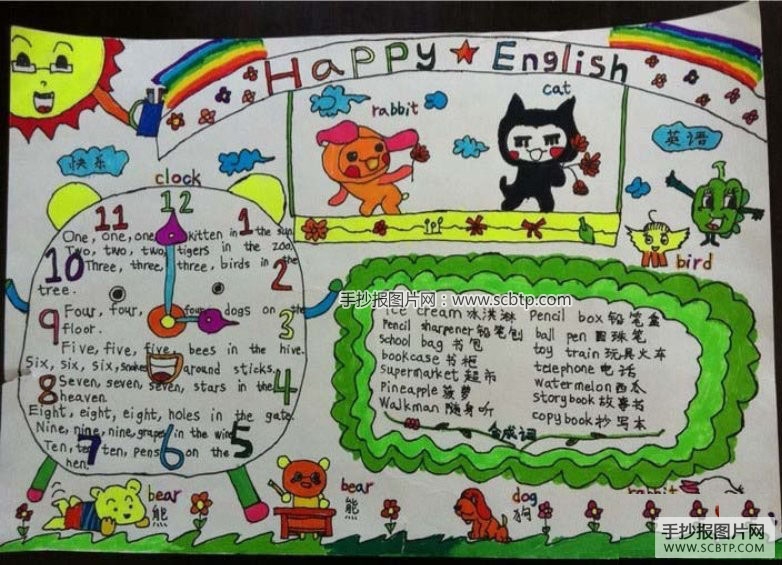 HAPPY ★ English
cat
rabbit
快乐
英语
clock
12
11
1
One, one, one, kitten in the sun.
Two, two, two, tigers in the zoo.
10
Three, three, three, birds in the
2
tree.
bird
手抄报图片网：www.scbtp.com
9
Four, four, four, dogs on the
3
floor.
Five, five, five, bees in the hive.
Six, six, six, snakes around sticks.
8
Seven, seven, seven, stars in the
4
heaven.
Eight, eight, eight, holes in the gate.
Nine, nine, nine, grapes in the wine.
7
6
5
Ten, ten, ten, pens on the
hen.
ice cream 冰淇淋
pencil box 铅笔盒
Pencil sharpener 铅笔刨
ball pen 圆珠笔
School bag 书包
toy train 玩具火车
bookcase 书柜
telephone 电话
supermarket 超市
watermelon 西瓜
Pineapple 菠萝
Storybook 故事书
Walkman 随身听
copybook 抄写本
合成词
bear
熊
bear
熊
dog
狗
rabbit
手抄报图片网
WWW.SCBTP.COM